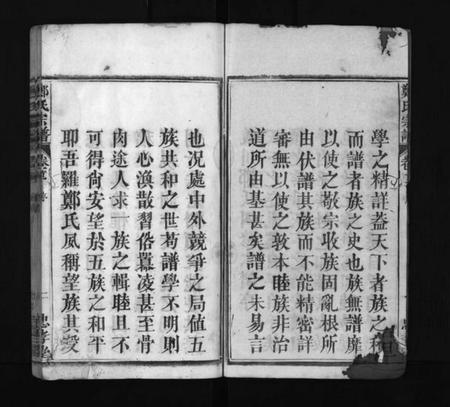 鄭氏宗譜
學之精詳蓋天下者族之積
而譜者族之史也族無譜靡
以使之敬宗收族固亂根所
由伏譜其族而不能精密詳
審無以使之敦本睦族非治
道所由基甚矣譜之未易言
也况處中外競爭之局值五
族共和之世苟譜學不明則
人心渙散習俗囂凌甚至骨
肉途人求一族之輯睦且不
可得尚安望於五族之和平
耶吾羅鄭氏夙稱望族其受
鄭氏宗譜
卷
二
忠孝堂